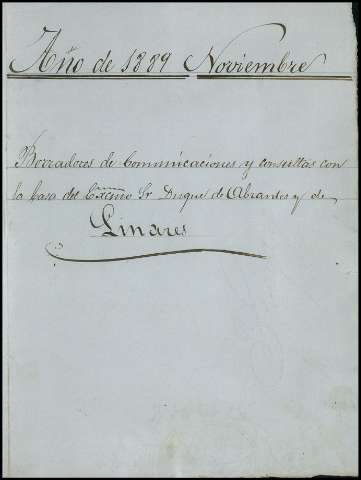 Año de 1889 Noviembre
Borradores de Comunicaciones y consultas con
la Casa del Excmo Sr Duque de Abrantes y de
Linares